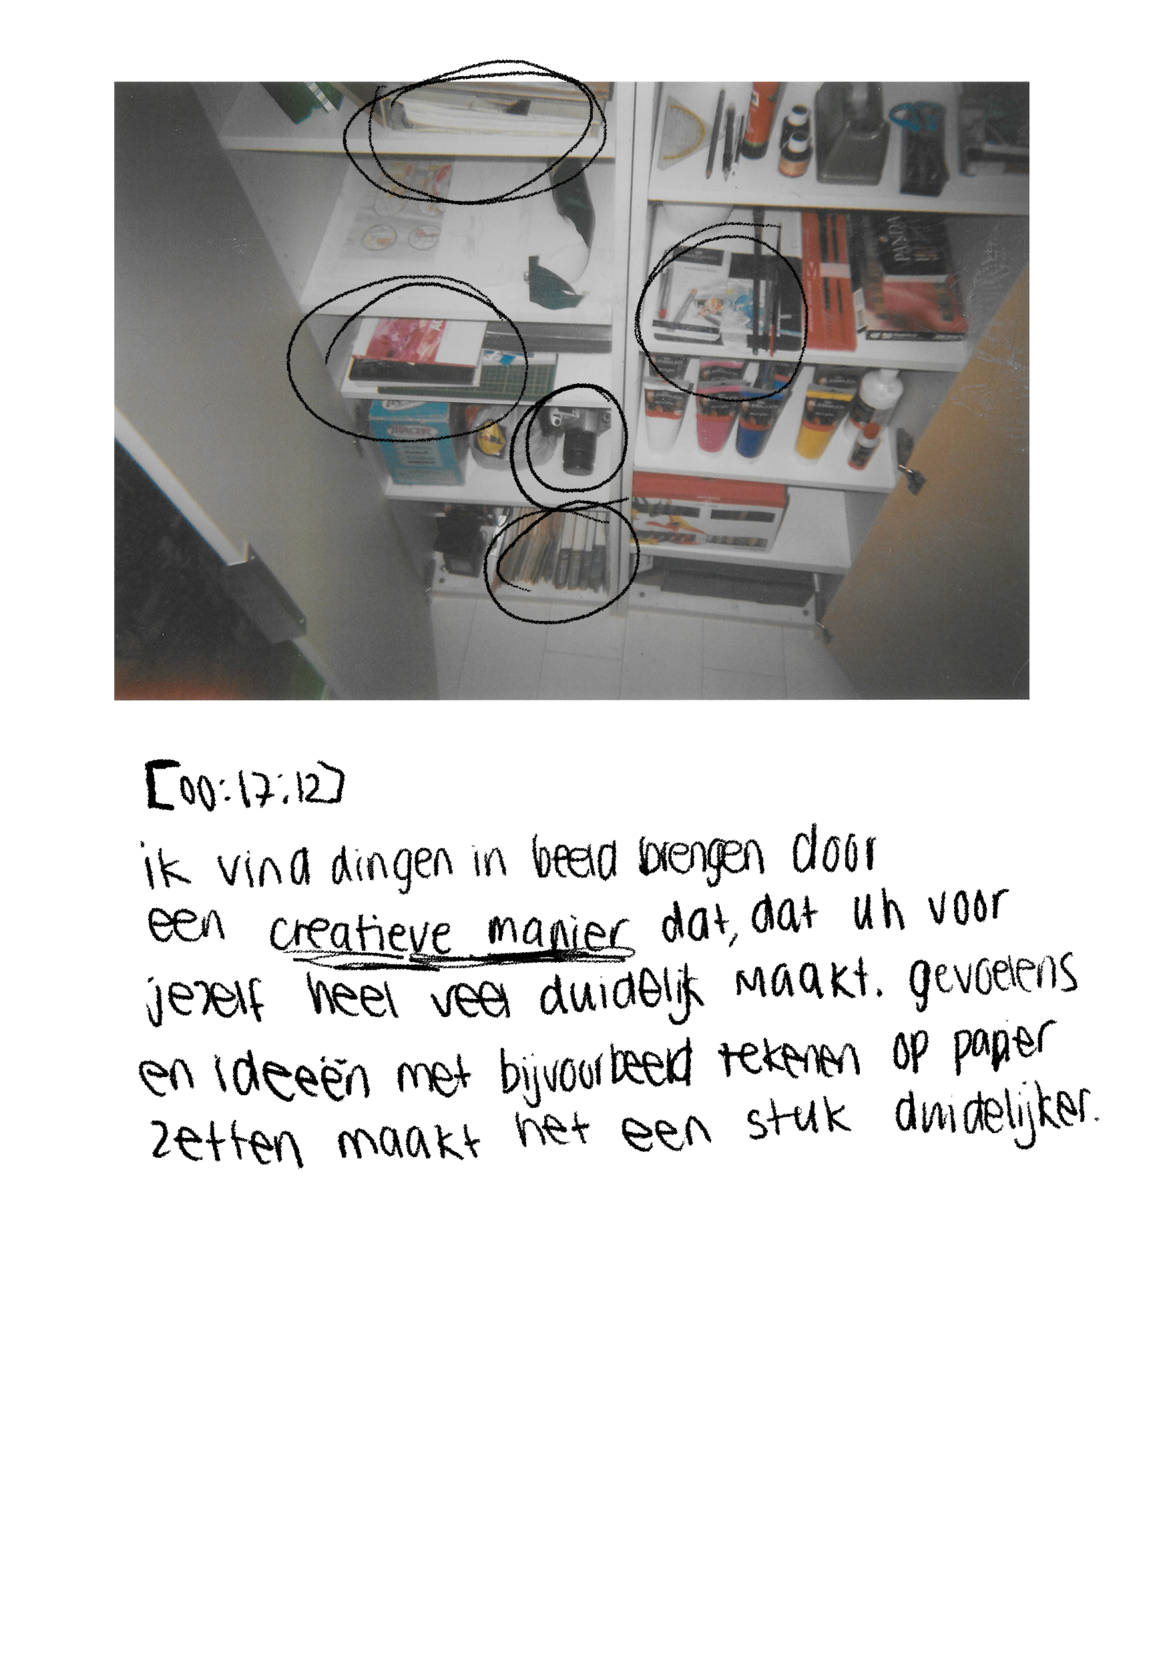 PANDA
[00:17:12]
ik vind dingen in beeld brengen door
een creatieve manier dat, dat uh voor
jezelf heel veel duidelijk maakt. gevoelens
en ideeën met bijvoorbeeld tekenen op papier
zetten maakt het een stuk duidelijker.